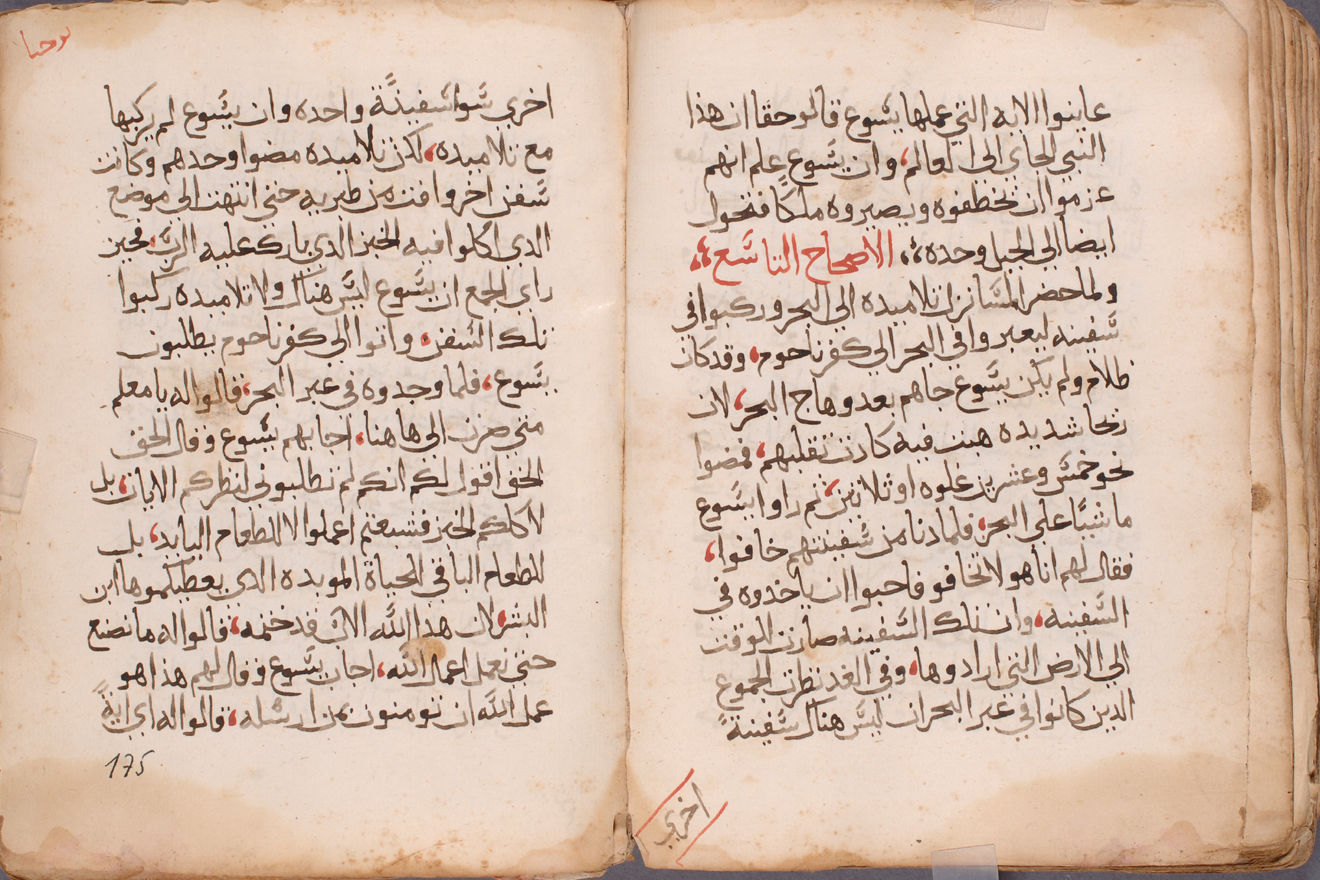 عاينوا الايه التي عملها يسوع قالو حقا ان هذا
النبي الجاي الى العالم، وان يسوع علم انهم
عزموا ان تخطفوه ويصيروه ملكا فتحول
ايضا الي الجبل وحده، الاصحاح التاسع،
ولما حضر المسا نزل تلاميده الي البحر وركبوا في
سفينه ليعبروا في البحر الي كفرناحوم، وقد كان
ظلام ولم يكن يسوع جاهم بعد وهاج البحر، لان
ريحا شديده هبت فيه كادت تقلبهم، فمضوا
نحو خمس وعشرين غلوه او ثلاثين، ثم راوا يسوع
ماشيا علي البحر، فلما دنا من سفينتهم خافوا،
فقال لهم انا هو لا تخافو فاحبوا ان ياخدوه في
السفينه، وان تلك السفينه صارت للوقت
الي الارض التي ارادوها، وفي الغد نظرت الجموع
الدين كانوا في عبر البحر ان ليس هناك سفينة
اخري
يوحنا
اخري سوا سفينة واحده وان يسوع لم يركبها
مع تلاميده، لكن تلاميده مضوا وحدهم وكانت
سفن اخر وافت من طبريه حتي انتهت الى موضع
الدي اكلوا فيه الخبز الدي بارك عليه الرب، فحين
راي الجمع ان يسوع ليس هناك ولا تلاميده ركبوا
تلك السفن، واتوا الى كفرناحوم يطلبون
يسوع، فلما وجدوه في عبر البحر، قالوا له يا معلم
متي صرت الي هاهنا، اجابهم يسوع وقال الحق
الحق اقول لكم انكم لم تطلبوني لنظركم الايات، بل
لاكلكم الخبز فشبعتم اعملوا لا للطعام البايد، بل
للطعام الباقي للحياة الموبده الدي يعطيكموها ابن
البشر، لان هدا الله الاب قد ختمه، قالوا له ما نصنع
حتي نعمل اعمال الله، اجاب يسوع وقال لهم هذا هو
عمل الله ان تومنون بمن ارسله، قالوا له اي اية
175